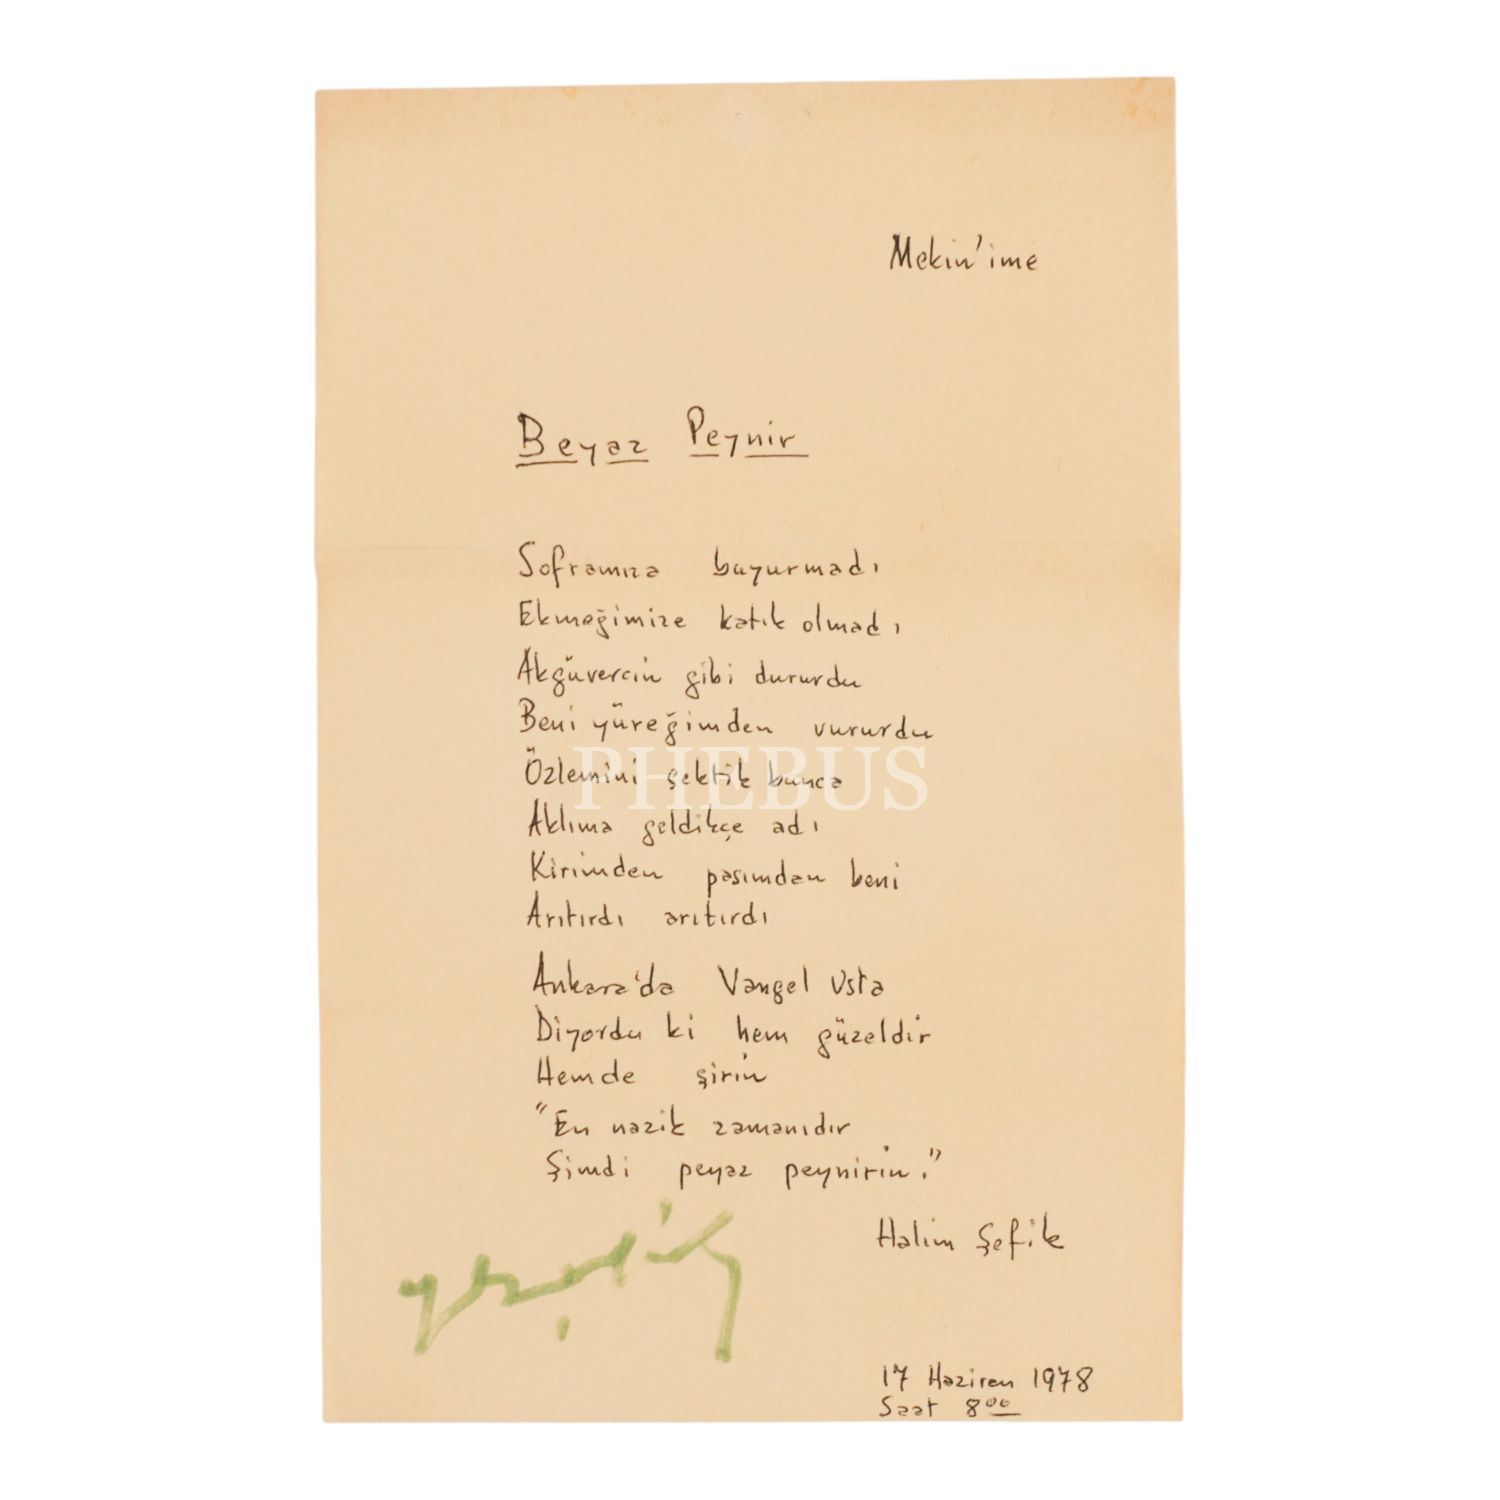 Mekin'ime
Beyaz Peynir
Soframıza buyurmadı
Ekmeğimize katık olmadı
Akgüvercin gibi dururdu
Beni yüreğimden vururdu
Özlemini çektik bunca
PHEBUS
Aklıma geldikçe adı
Kirimden pasımdan beni
Arıtırdı arıtırdı
Ankara'da Vangel Usta
Diyordu ki hem güzeldir
Hemde şirin
"En nazik zamanıdır
Şimdi peyaz peynirin."
Halim Şefik
17 Haziran 1978
Saat 8⁰⁰